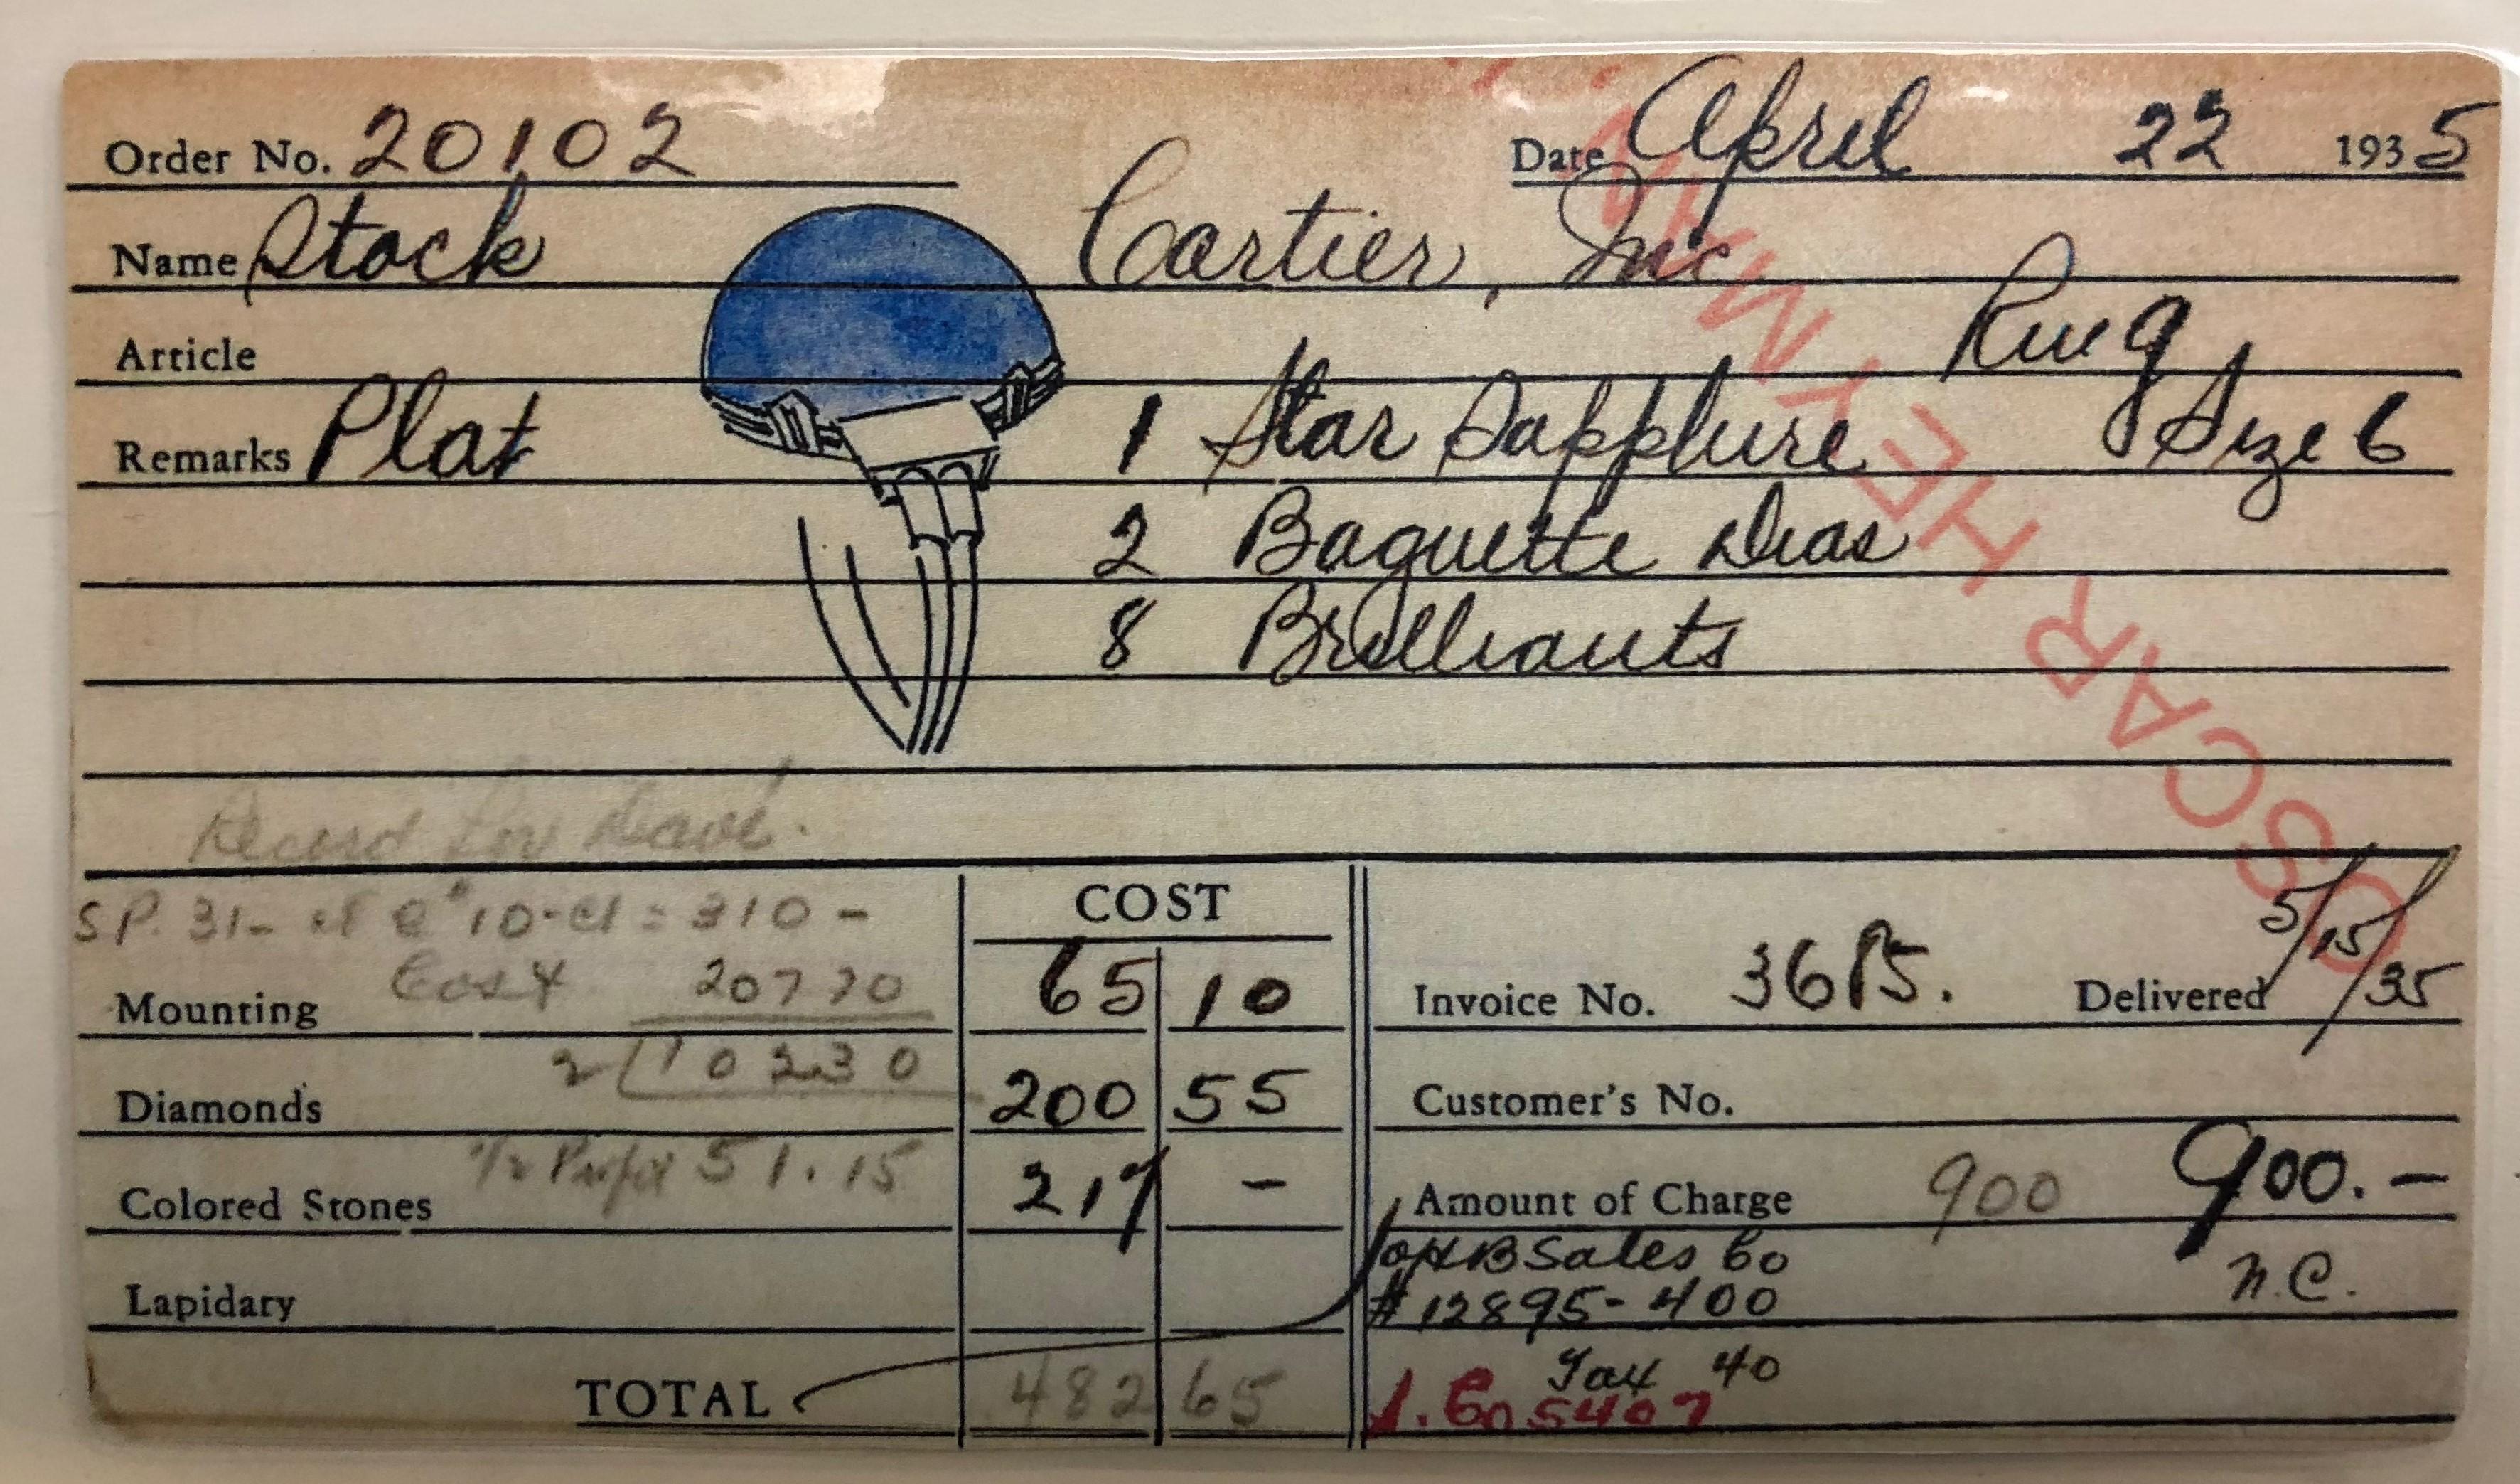 Order No. 20102 Date April 22 1935
Name Stock Cartier, Inc
Article Ring
Remarks Plat 1 Star Sapphire Size 6
2 Baguette Dias
8 Brilliants
OSCAR HEYMAN
Record for
S.P. 31- @ 10-ct = 310 -
COST
Mounting Cost 207 70 65 10 Invoice No. Delivered 5/15/35
Diamonds 2 102 30 200 55 Customer's No.
Colored Stones 1/2 Profit 51.15 217 - Amount of Charge 900 900.-
OHB Sales Co N.C.
Lapidary #12895-400
Tax 40
TOTAL 482 65 5407